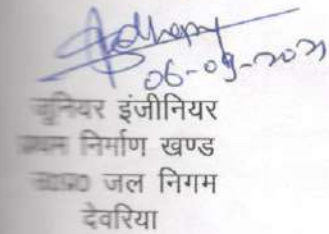 06-09-2021
जूनियर इंजीनियर
निर्माण खण्ड
जल निगम
देवरिया